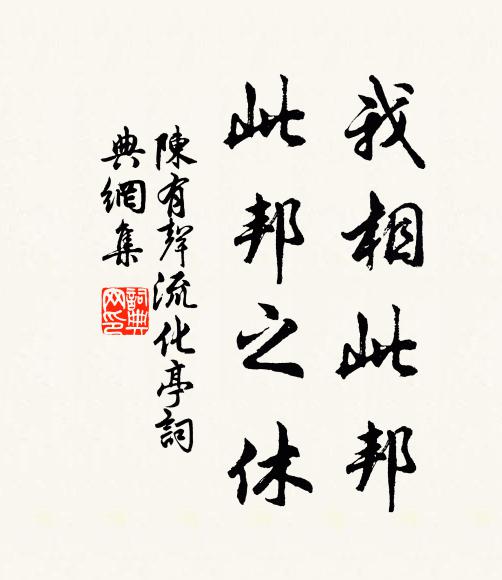 我相此邦
此邦之休
陳有聲流化亭詞
典網集
詞典網印